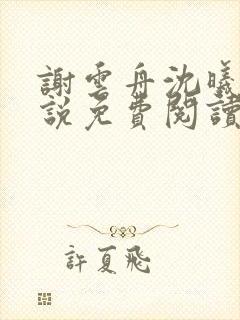 謝雲舟沈曦
説免費閱讀
許夏飛